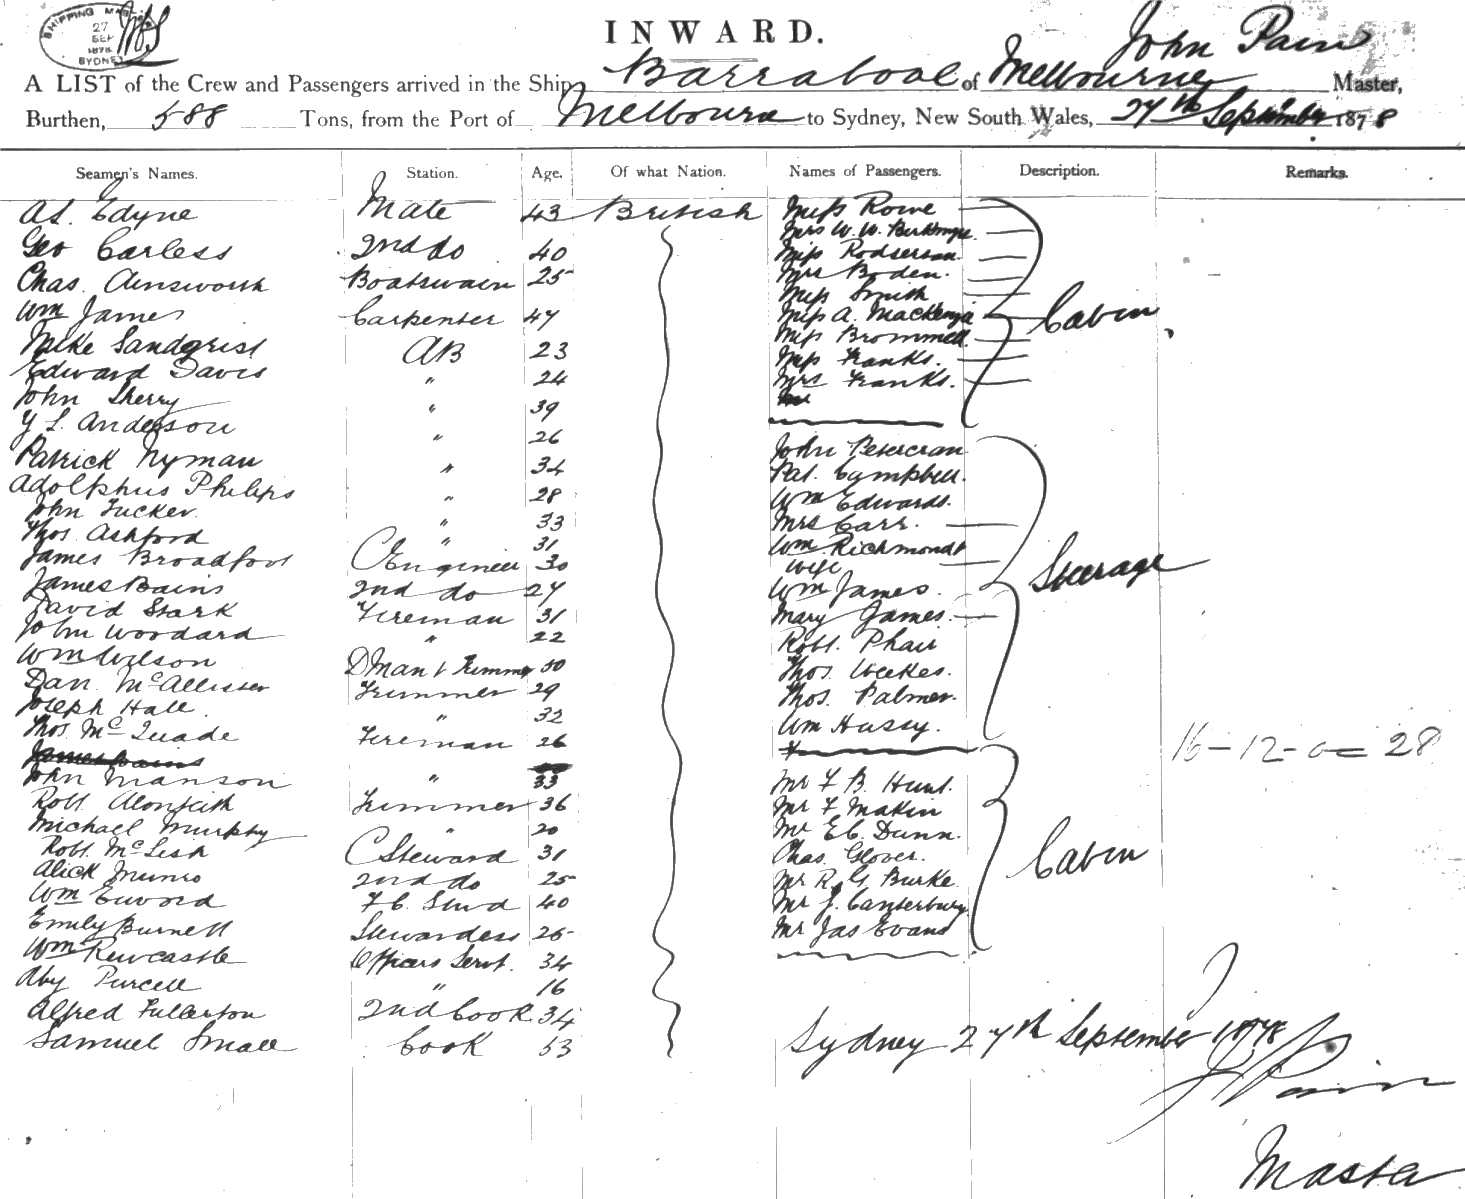 SHIPPING MAS
27
SEP
1878
SYDNEY
INWARD.
John Pain
A LIST of the Crew and Passengers arrived in the Ship Barrabool of Melbourne Master,
Burthen, 588 Tons, from the Port of Melbourne to Sydney, New South Wales, 27th September 1878
Seamen's Names. Station. Age. Of what Nation. Names of Passengers. Description. Remarks.
As. Edyne Mate 43 British Miss Rowe
Mrs W. W.
Geo Carless 2nd do 40 Miss
Chas. Ainsworth Boatswain 25 Mrs Boden.
Miss Smith
Wm James Carpenter 47 Miss A. Mackenzie Cabin
Miss Brommell.
Mike Sandqrist AB 23 Miss Franks.
Edward Davis " 24 Mrs Franks.
John Sherry " 39
Y L. Anderson " 26
Patrick Nyman " 34 John
Pat. Campbell.
Adolphus Philips " 28 Wm Edwards.
John Tucker. " 33 Mrs Carr.
Thos Ashford " 31 Wm Richmond
James Broadfoot C Engineer 30 wife Steerage
James Bains 2nd do 27 Wm James.
David Stark Fireman 31 Mary James.
John Woodard " 22 Robt. Phair
Wm Wilson D Man & Trimmer 30 Thos. Weekes.
Dan McAllister Trimmer 29 Thos. Palmer.
Joseph Hall. " 32 Wm Hussy.
Thos McQuade Fireman 26 16-12-0= 28
John Manson " 33 Mr F B. Hunt.
Robt Alonfaith Trimmer 36 Mr F Makin
Michael Murphy " 20 Mr E C. Dunn.
Robt. McLish C Steward 31 Chas. Glover. Cabin
Alick Munro 2nd do 25 Mr R. G Burke
Wm Euvord F C. Stwd 40 Mr J. Canterbury
Emily Burnett Stewardess 25 Mr Jas Evans
Wm Rewcastle Officers Servt. 34
Aby Purcell " 16
Alfred Fullerton 2nd Cook 34
Samuel Small Cook 53 Sydney 27th September 1878
J Pain
Master